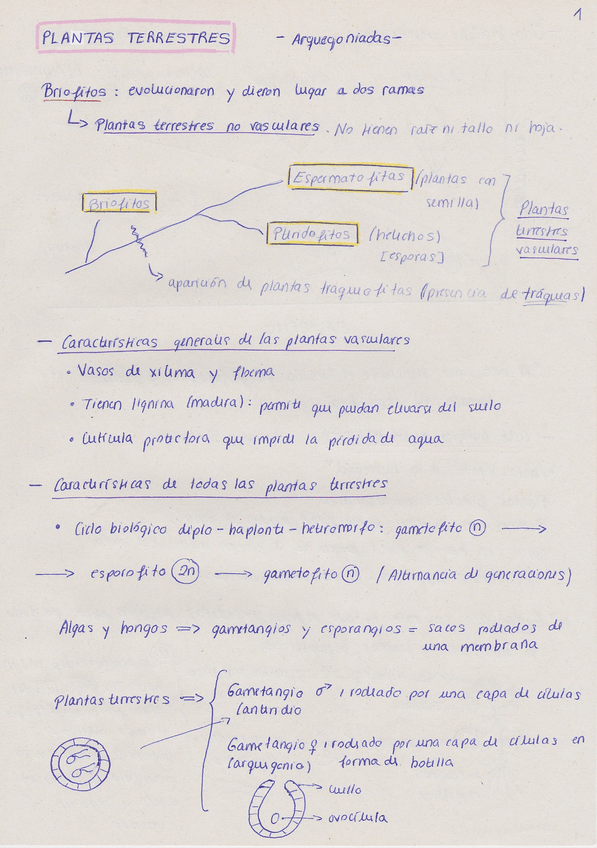 1
PLANTAS TERRESTRES - Arquegoniadas -
Briofitos : evolucionaron y dieron lugar a dos ramas
Plantas terrestres no vasculares. No tienen raíz ni tallo ni hoja.
Espermatofitas (plantas con
semilla)
Briofitos
Plantas
terrestres
vasculares
Pteridofitos (helechos)
[esporas]
aparición de plantas traqueofitas (presencia de tráqueas)
- Características generales de las plantas vasculares
• Vasos de xilema y floema
• Tienen lignina (madera) : permite que puedan elevarse del suelo
• Cutícula protectora que impide la pérdida de agua
- Características de todas las plantas terrestres
• Ciclo biológico diplo-haplonte-heteromorfo : gametofito n →
→ esporofito 2n → gametofito n (Alternancia de generaciones)
Algas y hongos => gametangios y esporangios = sacos rodeados de
una membrana
Plantas terrestres => Gametangio ♂ : rodeado por una capa de células
(anteridio
Gametangio ♀ : rodeado por una capa de células en
(arquegonio) forma de botella
cuello
ovocélula